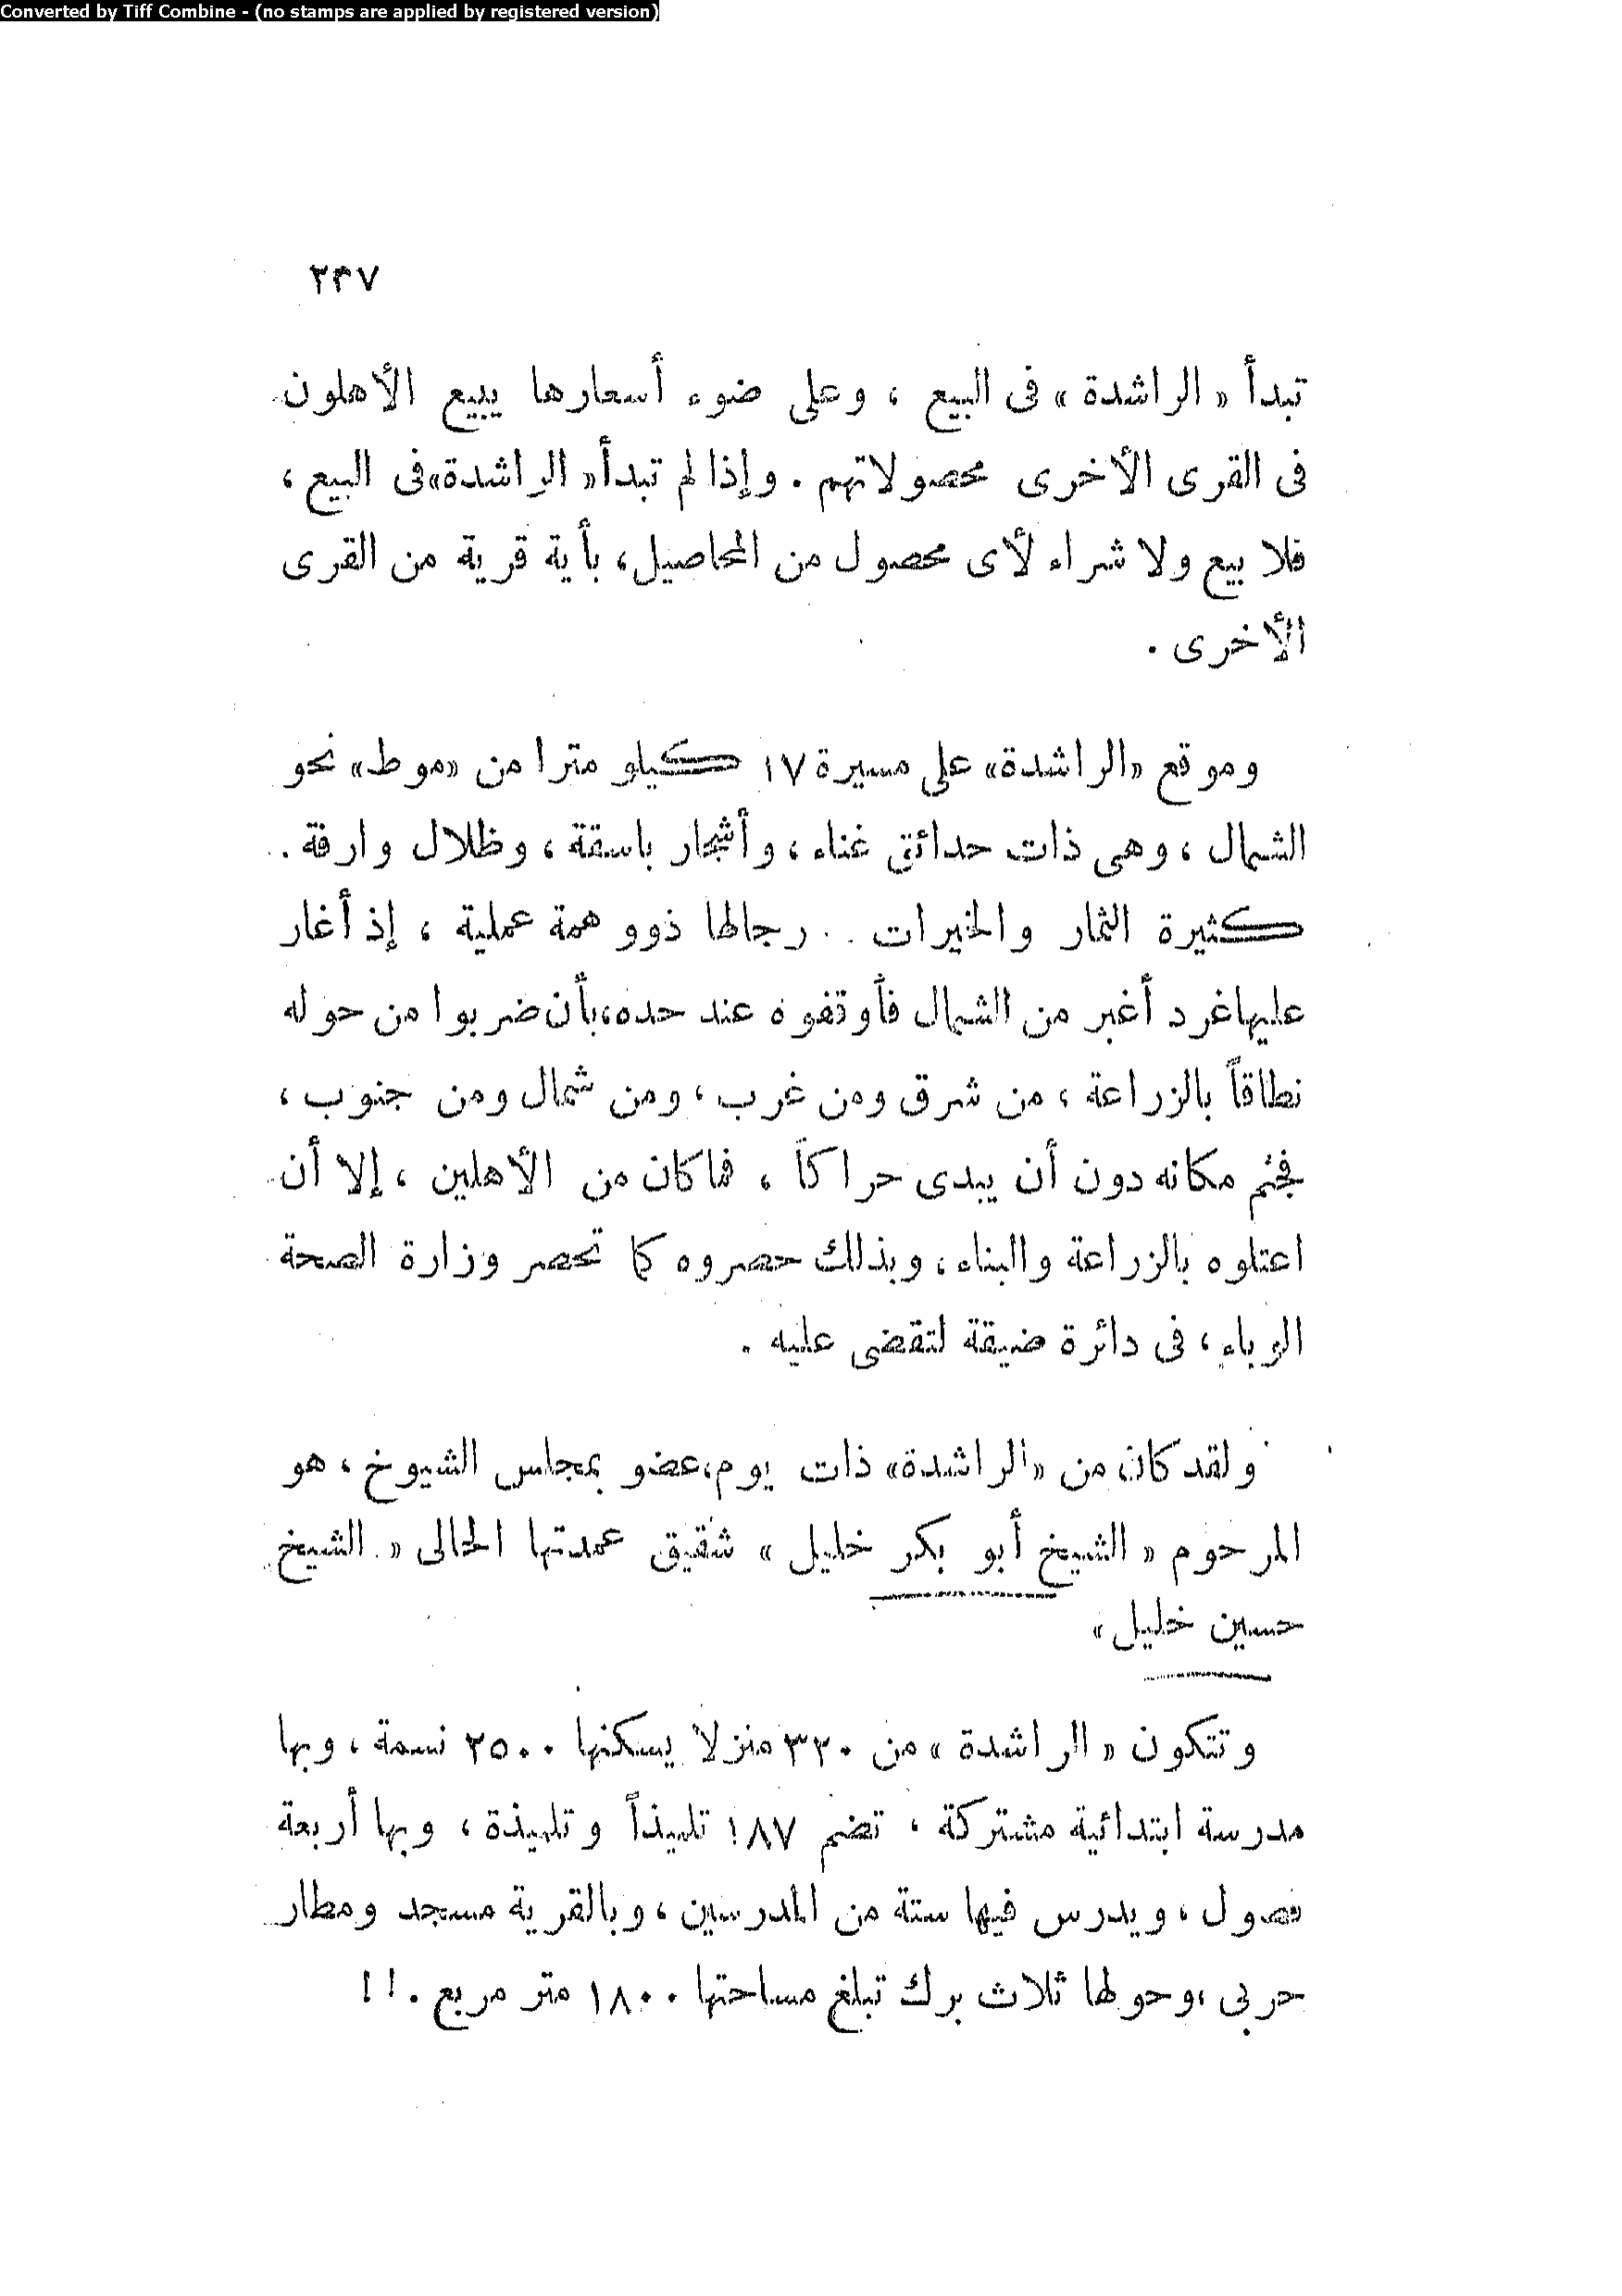 Converted by Tiff Combine - (no stamps are applied by registered version)
٢٣٧
تبدأ « الراشدة » فى البيع ، وعلى ضوء أسعارها يبيع الأهلون
فى القرى الأخرى محصولاتهم . وإذا لم تبدأ « الراشدة » فى البيع ،
فلا بيع ولا شراء لأى محصول من المحاصيل ، بأية قرية من القرى
الأخرى .
وموقع «الراشدة» على مسيرة ١٧ كيلو مترا من «موط» نحو
الشمال ، وهى ذات حدائق غناء ، وأشجار باسقة ، وظلال وارفة .
كثيرة الثمار والخيرات .. رجالها ذوو همة عملية ، إذ أغار
عليها غرد أغبر من الشمال فأوقفوه عند حده ، بأن ضربوا من حوله
نطاقاً بالزراعة ، من شرق ومن غرب ، ومن شمال ومن جنوب ،
فجثم مكانه دون أن يبدى حراكاً ، فما كان من الأهلين ، إلا أن
اعتلوه بالزراعة والبناء ، وبذلك حصروه كما تحصر وزارة الصحة
الوباء ، فى دائرة ضيقة لتقضى عليه .
ولقد كان من «الراشدة» ذات يوم ، عضو بمجلس الشيوخ ، هو
المرحوم « الشيخ أبو بكر خليل » شقيق عمدتها الحالى « الشيخ
حسين خليل »
وتتكون « الراشدة » من ٣٢٠ منزلا يسكنها ٢٥٠٠ نسمة ، وبها
مدرسة ابتدائية مشتركة ، تضم ١٨٧ تلميذاً وتلميذة ، وبها أربعة
فصول ، ويدرس فيها ستة من المدرسين ، وبالقرية مسجد ومطار
حربى ، وحولها ثلاث برك تبلغ مساحتها ١٨٠٠ متر مربع . ! !